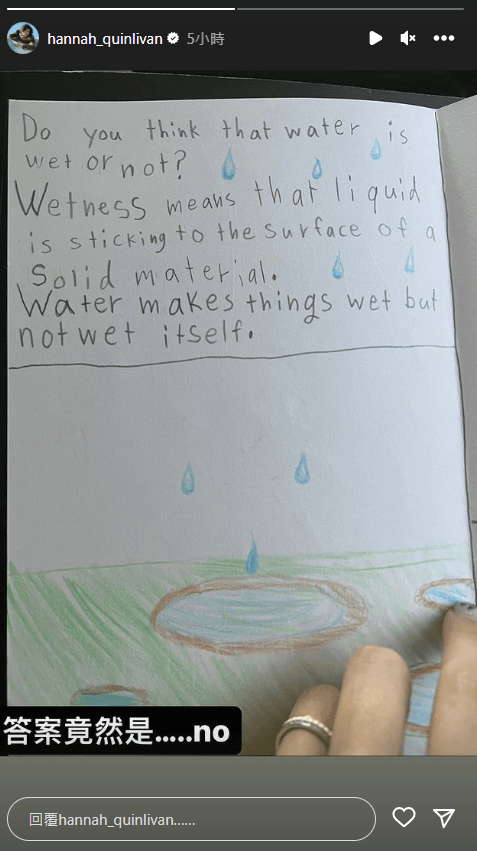 hannah_quinlivan 5小時
Do you think that water is
wet or not?
Wetness means that liquid
is sticking to the surface of a
Solid material.
Water makes things wet but
not wet itself.
答案竟然是.....no
回覆hannah_quinlivan......